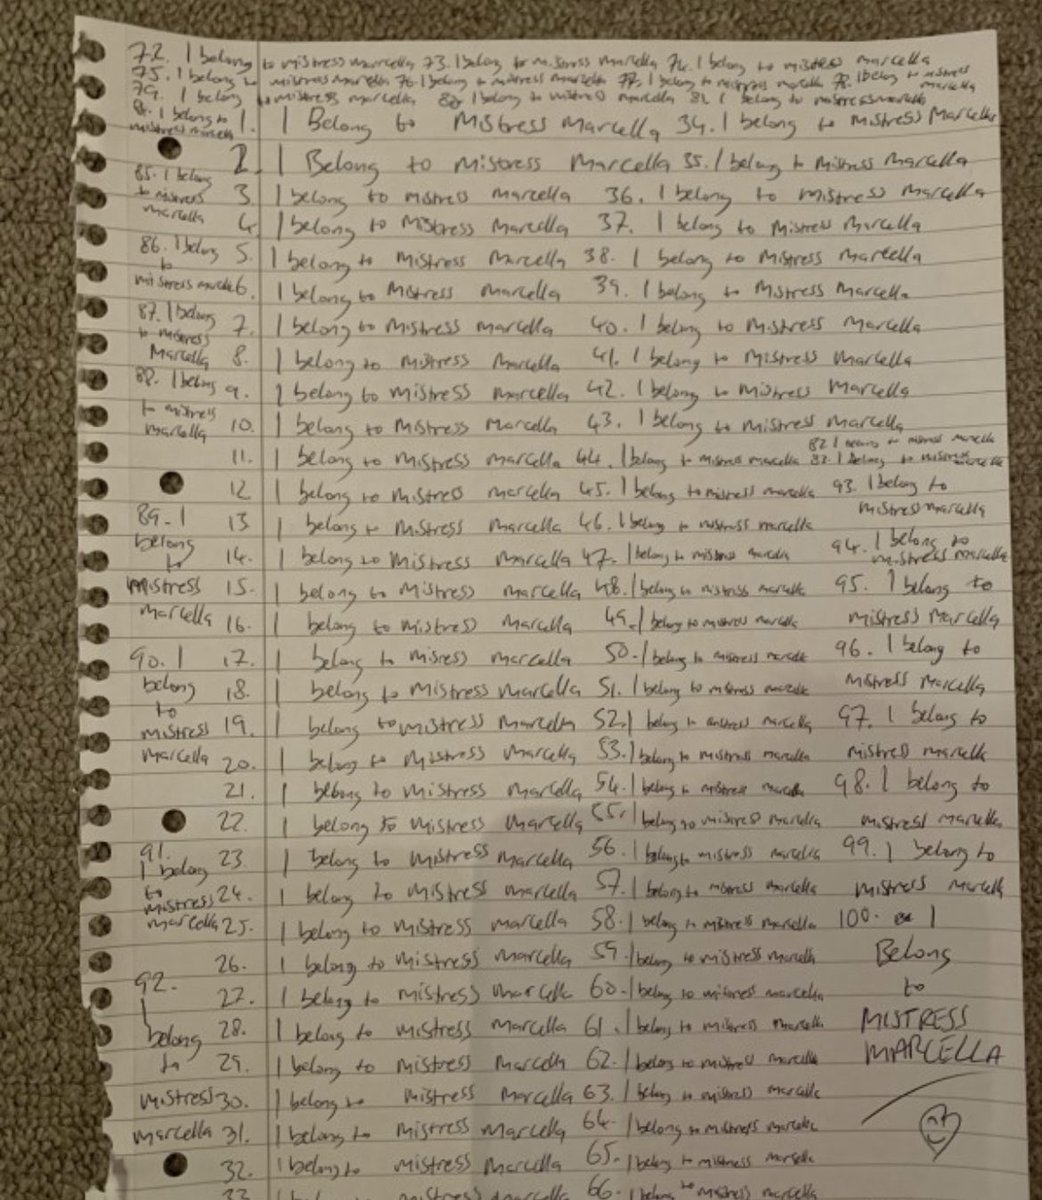 72. I belong to mistress marcella 73. I belong to mistress marcella 74. I belong to mistress marcella
75. I belong to mistress marcella 76. I belong to mistress marcella 77. I belong to mistress marcella 78. I belong to mistress marcella
79. I belong to mistress marcella 80. I belong to mistress marcella 81. I belong to mistress marcella
I belong to mistress marcella
1. I Belong to Mistress Marcella 34. I belong to Mistress Marcella
2. I Belong to Mistress Marcella 35. I belong to Mistress Marcella
3. I belong to mistress marcella 36. I belong to Mistress Marcella
4. I belong to Mistress Marcella 37. I belong to Mistress Marcella
5. I belong to Mistress Marcella 38. I belong to Mistress Marcella
6. I belong to Mistress Marcella 39. I belong to Mistress Marcella
7. I belong to Mistress marcella 40. I belong to Mistress Marcella
8. I belong to Mistress Marcella 41. I belong to Mistress Marcella
9. I belong to mistress Marcella 42. I belong to Mistress Marcella
10. I belong to Mistress Marcella 43. I belong to Mistress Marcella
11. I belong to mistress Marcella 44. I belong to mistress marcella
12 I belong to Mistress marcella 45. I belong to mistress marcella
13 I belong to Mistress Marcella 46. I belong to mistress marcella
14. I belong to Mistress Marcella 47. I belong to mistress marcella
15. I belong to Mistress Marcella 48. I belong to mistress marcella
16. I belong to mistress Marcella 49. I belong to mistress marcella
17. I belong to misress marcella 50. I belong to mistress marcella
18. I belong to Mistress Marcella 51. I belong to mistress marcella
19. I belong to mistress Marcella 52. I belong to mistress marcella
20. I belong to Mistress Marcella 53. I belong to mistress marcella
21. I belong to mistress Marcella 54. I belong to mistress marcella
22. I belong to mistress Marcella 55. I belong to mistress marcella
23. I belong to Mistress Marcella 56. I belong to mistress marcella
24. I belong to mistress Marcella 57. I belong to mistress marcella
25. I belong to mistress marcella 58. I belong to mistress marcella
26. I belong to mistress marcella 59. I belong to mistress marcella
27. I belong to mistress marcella 60. I belong to mistress marcella
28. I belong to mistress Marcella 61. I belong to mistress marcella
29. I belong to mistress Marcella 62. I belong to mistress marcella
30. I belong to mistress Marcella 63. I belong to mistress marcella
31. I belong to mistress Marcella 64. I belong to mistress marcella
32. I belong to mistress Marcella 65. I belong to mistress marcella
33. I belong to mistress marcella 66. I belong to mistress marcella
82 I belong to mistress marcella
83. I belong to mistress marcella
85. I belong
to mistress
marcella
86. I belong
to
mistress marcella
87. I belong
to mistress
Marcella
88. I belong
to mistress
marcella
89. I
belong
to
Mistress
marcella
90. I
belong
to
mistress
marcella
91.
I belong
to
mistress
marcella
92.
I
belong
to
mistress
marcella
93. I belong to
mistress marcella
94. I belong to
mistress marcella
95. I belong to
mistress Marcella
96. I belong to
mistress Marcella
97. I belong to
mistress marcella
98. I belong to
mistress marcella
99. I belong to
mistress marcella
100. I
Belong
to
MISTRESS
MARCELLA